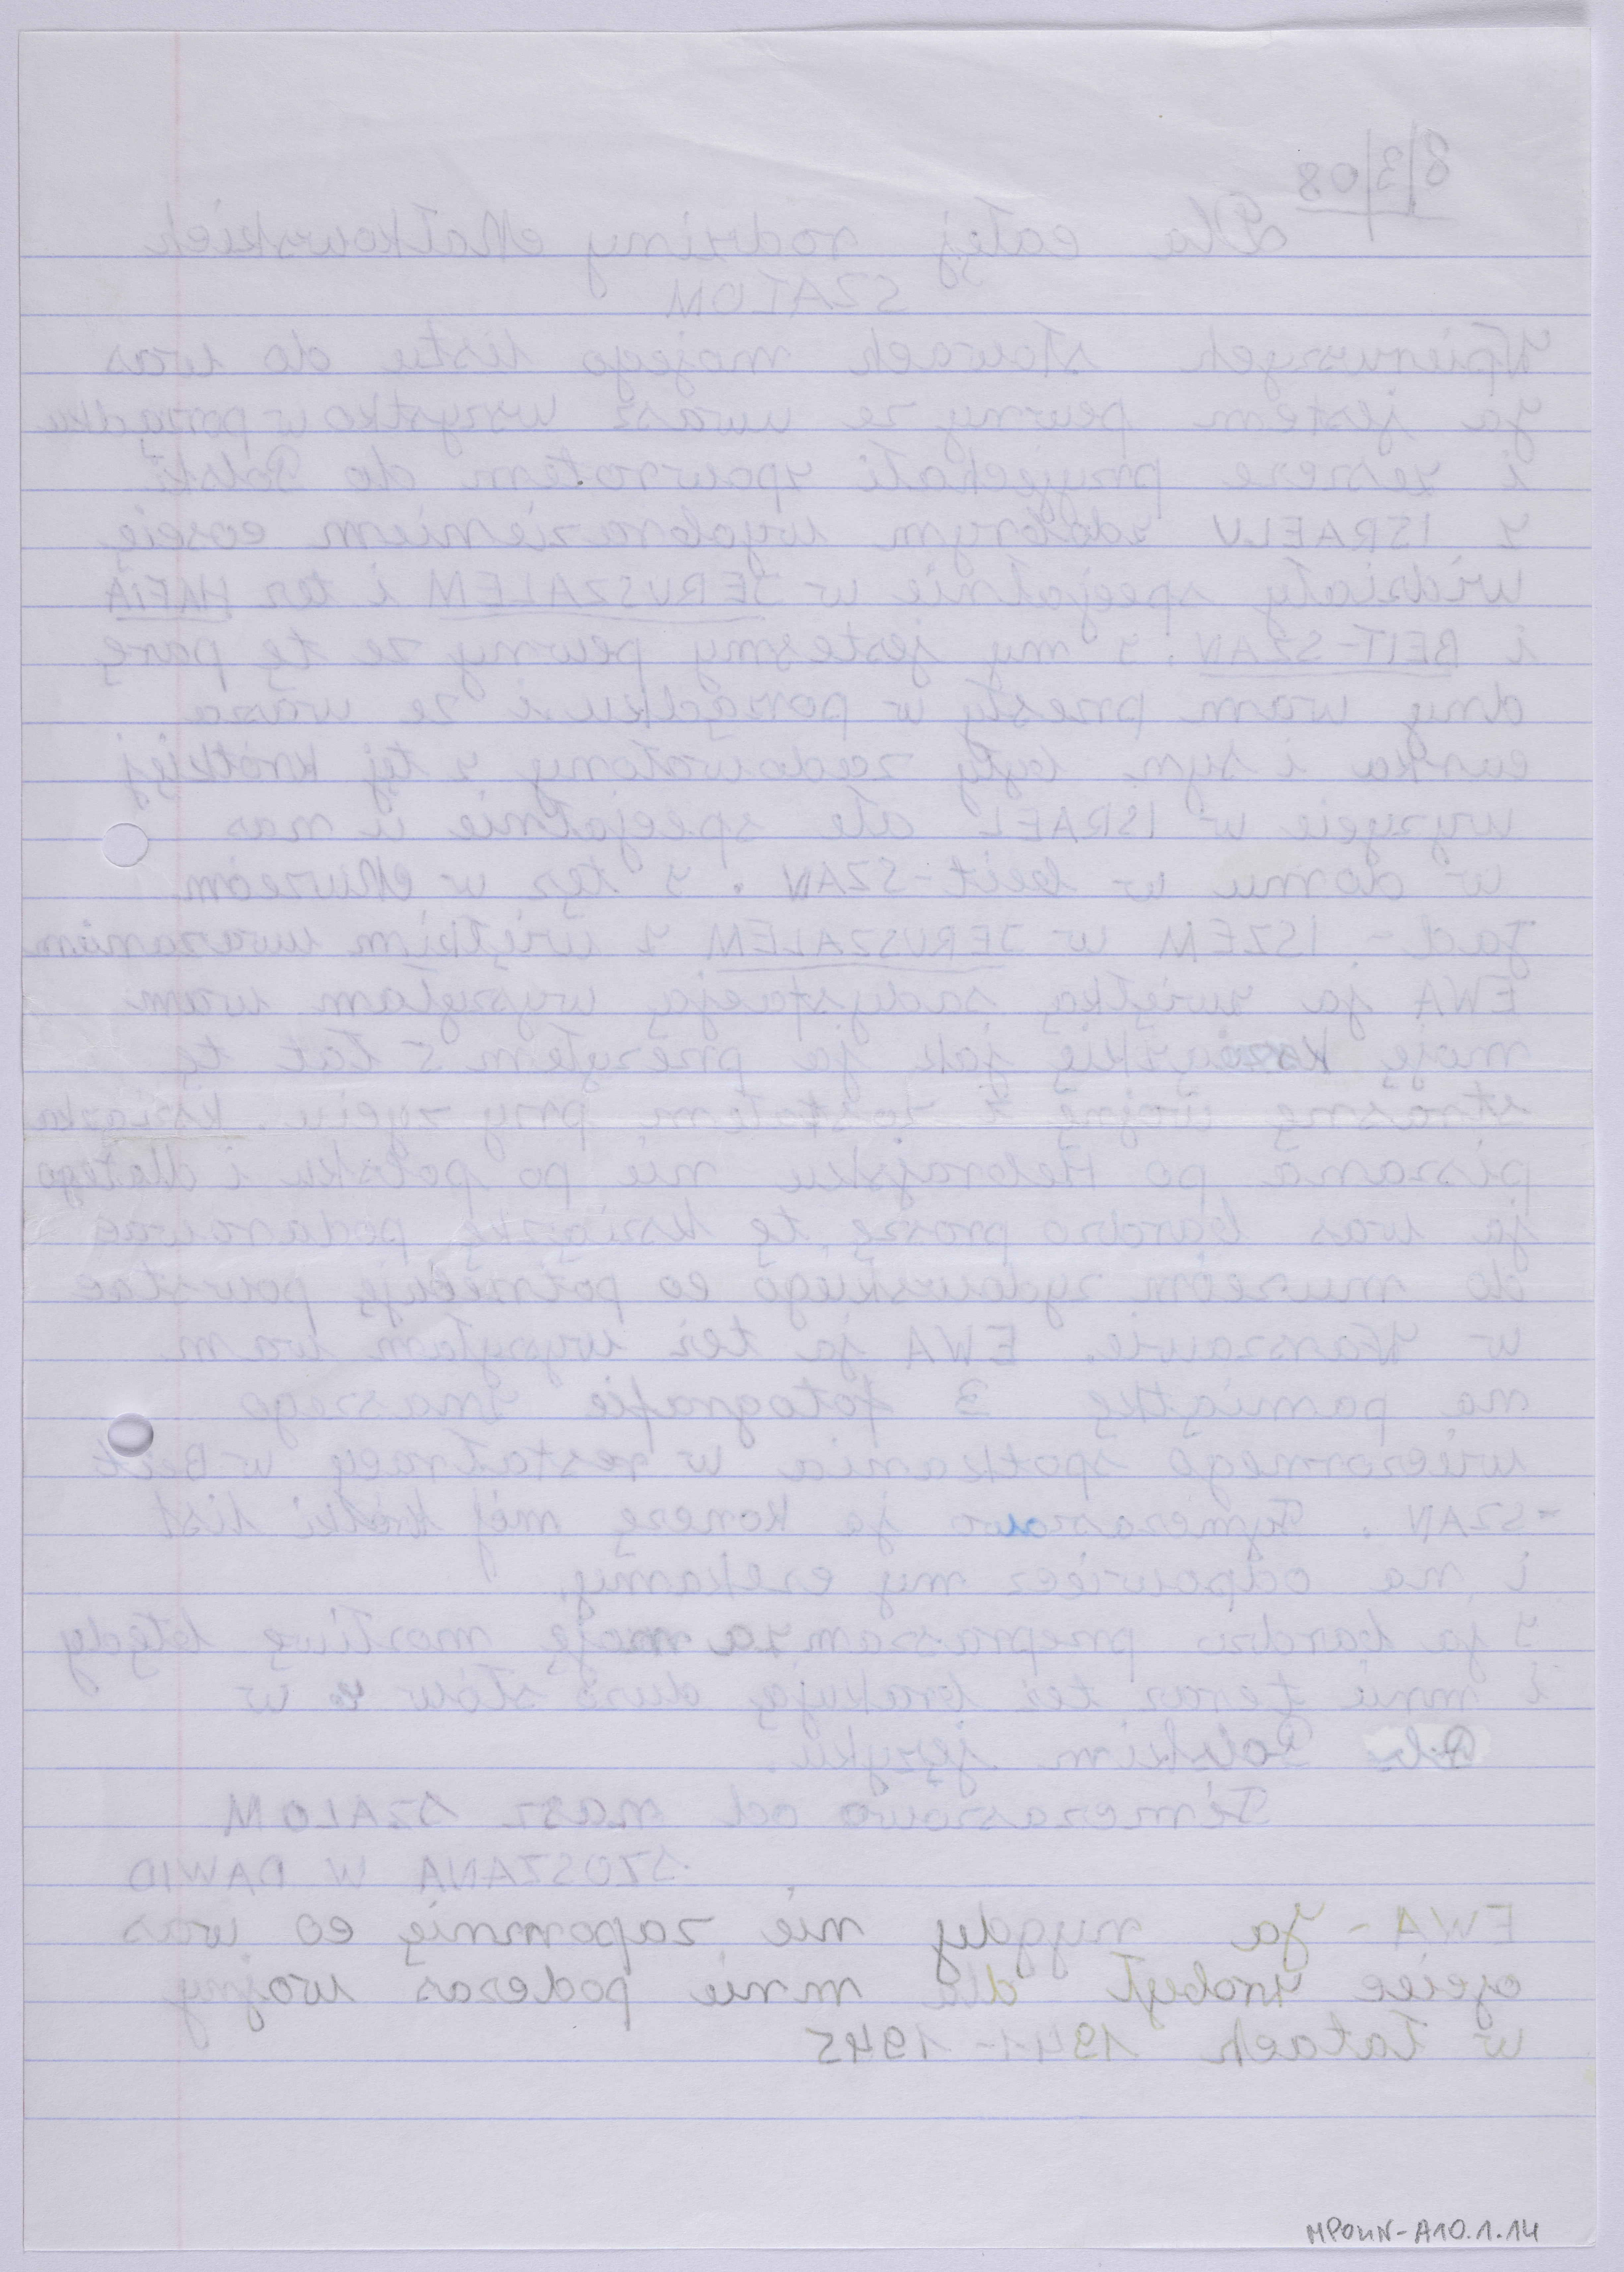 8/3/08
Dla całej rodziny Małkowskich
SZALOM
W pierwszych słowach mojego listu do was
ja jestem pewny ze uwasz wszystko w porządku
i zeszcze przyjechali spowrotem do Polski
z ISRAELU zdobrym wyobrazieniem coście
widziały specjalnie w JERUSZALEM i tez HAFIA
i BEIT-SZAN. y my jestesmy pewny ze tę parę
dny wam przesły w porządku i ze wasza
curka i syn były zadowolony z tej krótkiej
wyzycie w ISRAEL ale specjalnie u nas
w domu w beit-SZAN. y tez w Muzeóm
Jad - ISZEM w JERUSZALEM z więlkim uwazaniam
EWA ja zwięlką sadysfacją wysyłam wam
moję kszązkię jak ja przezyłem 5 lat tę
strasnę wojnę i zostałem przy zyciu. ksiązka
pisana po Hebrajsku nie po polsku i dlatego
ja was bardzo proszę tę ksziązkę podarować
do muzeóm zydowskiego co potrzebuję powstac
w Warszawie. EWA ja też wysyłam wam
na pamiątkę 3 fotografie znaszego
wieczornego spotkania w restałracy w Beit
-SZAN. Tymczasowo ja konczę mój krótki list
i na odpowiecz my czekamy.
y ja bardzo przepraszam za moję mozliwę błędy
i mnie teraz też brakują duzo słów w
Polskim języku.
Timczasowo od nasz SZALOM
SZOSZANA W DAWID
EWA - Ja nygdy nie zapomnię co was
ojciec zrobył dla mnie podczas wojny
w latach 1941-1945
MPOLIN-A10.1.14